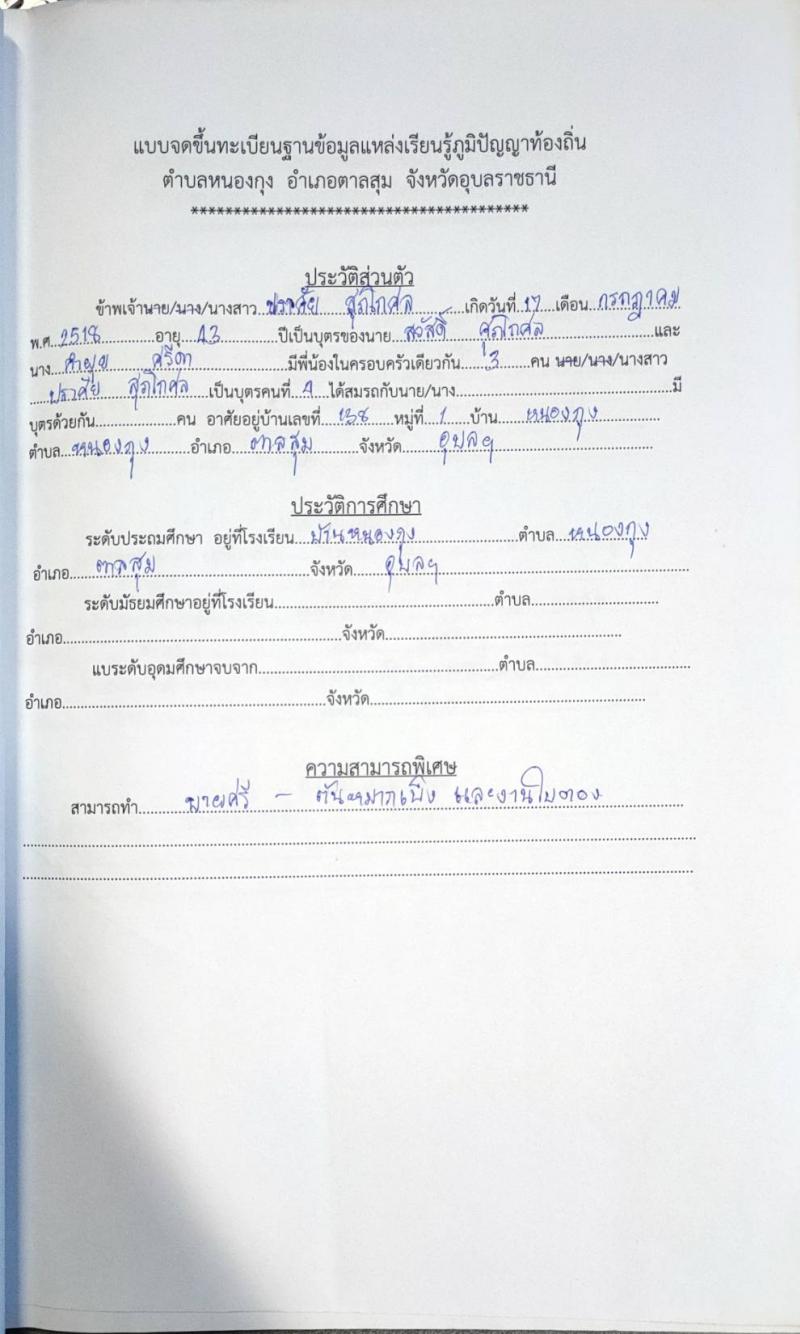 แบบจดขึ้นทะเบียนฐานข้อมูลแหล่งเรียนรู้ภูมิปัญญาท้องถิ่น
ตำบลหนองกุง อำเภอตาลสุม จังหวัดอุบลราชธานี
***************************************
ประวัติส่วนตัว
ข้าพเจ้านาย/นาง/นางสาว ปราศัย สุภโกศล เกิดวันที่ 17 เดือน กรกฎาคม
พ.ศ. 2518 อายุ 43 ปีเป็นบุตรของนาย สวัสดิ์ ศุภโกศล และ
นาง ศรีดา มีพี่น้องในครอบครัวเดียวกัน 3 คน นาย/นาง/นางสาว
ปราศัย สุภโกศล เป็นบุตรคนที่ ได้สมรถกับนาย/นาง มี
บุตรด้วยกัน คน อาศัยอยู่บ้านเลขที่ 138 หมู่ที่ 1 บ้าน หนองกุง
ตำบล หนองกุง อำเภอ ตาลสุม จังหวัด อุบลฯ
ประวัติการศึกษา
ระดับประถมศึกษา อยู่ที่โรงเรียน บ้านหนองกุง ตำบล หนองกุง
อำเภอ ตาลสุม จังหวัด อุบลฯ
ระดับมัธยมศึกษาอยู่ที่โรงเรียน ตำบล
อำเภอ จังหวัด
แบระดับอุดมศึกษาจบจาก ตำบล
อำเภอ จังหวัด
ความสามารถพิเศษ
สามารถทำ บายศรี - ต้นหมากเบ็ง และงานใบตอง